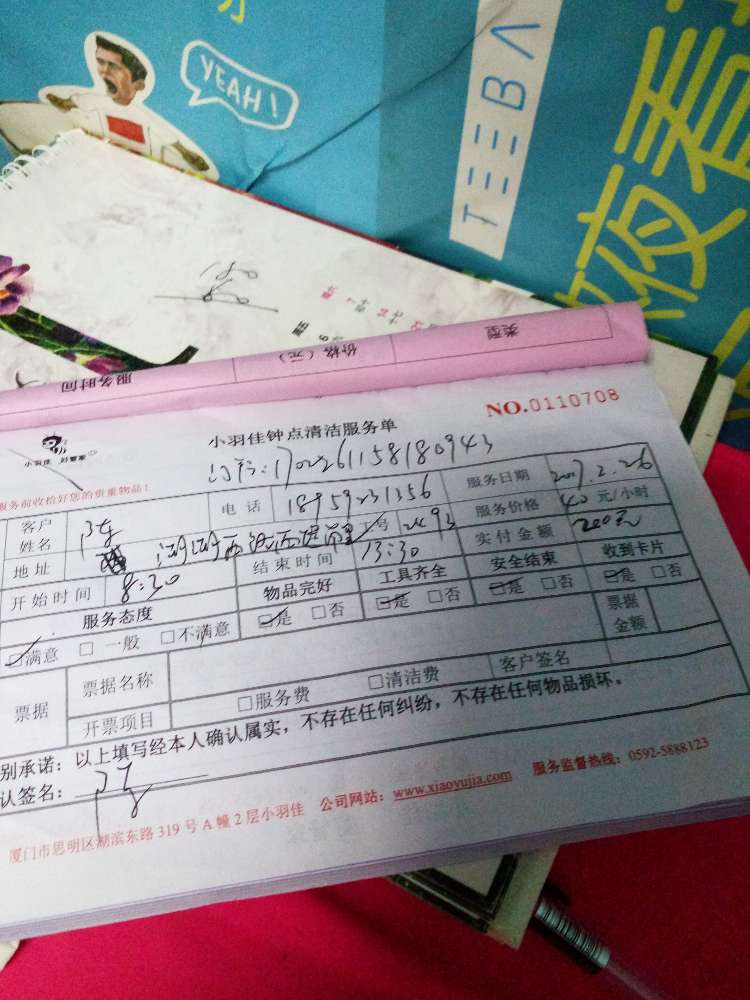 YEAH!
TEEBA
夜看
180
类型
价格(元)
服务时间
NO.0110708
小羽佳 好管家
小羽佳钟点清洁服务单
1702261158180943
服务前收拾好您的贵重物品!
客户姓名
电话 18959231356
服务日期 2017.2.26
地址
号 2493
服务价格 40 元/小时
开始时间 8:30
结束时间 13:30
实付金额 200元
服务态度
物品完好
工具齐全
安全结束
收到卡片
☑满意 □一般 □不满意
☑是 □否
☑是 □否
☑是 □否
☑是 □否
票据金额
票据
票据名称
客户签名
开票项目
□服务费
□清洁费
别承诺:以上填写经本人确认属实,不存在任何纠纷,不存在任何物品损坏。
认签名:
厦门市思明区湖滨东路319号A幢2层小羽佳 公司网站:www.xiaoyujia.com 服务监督热线:0592-5888123